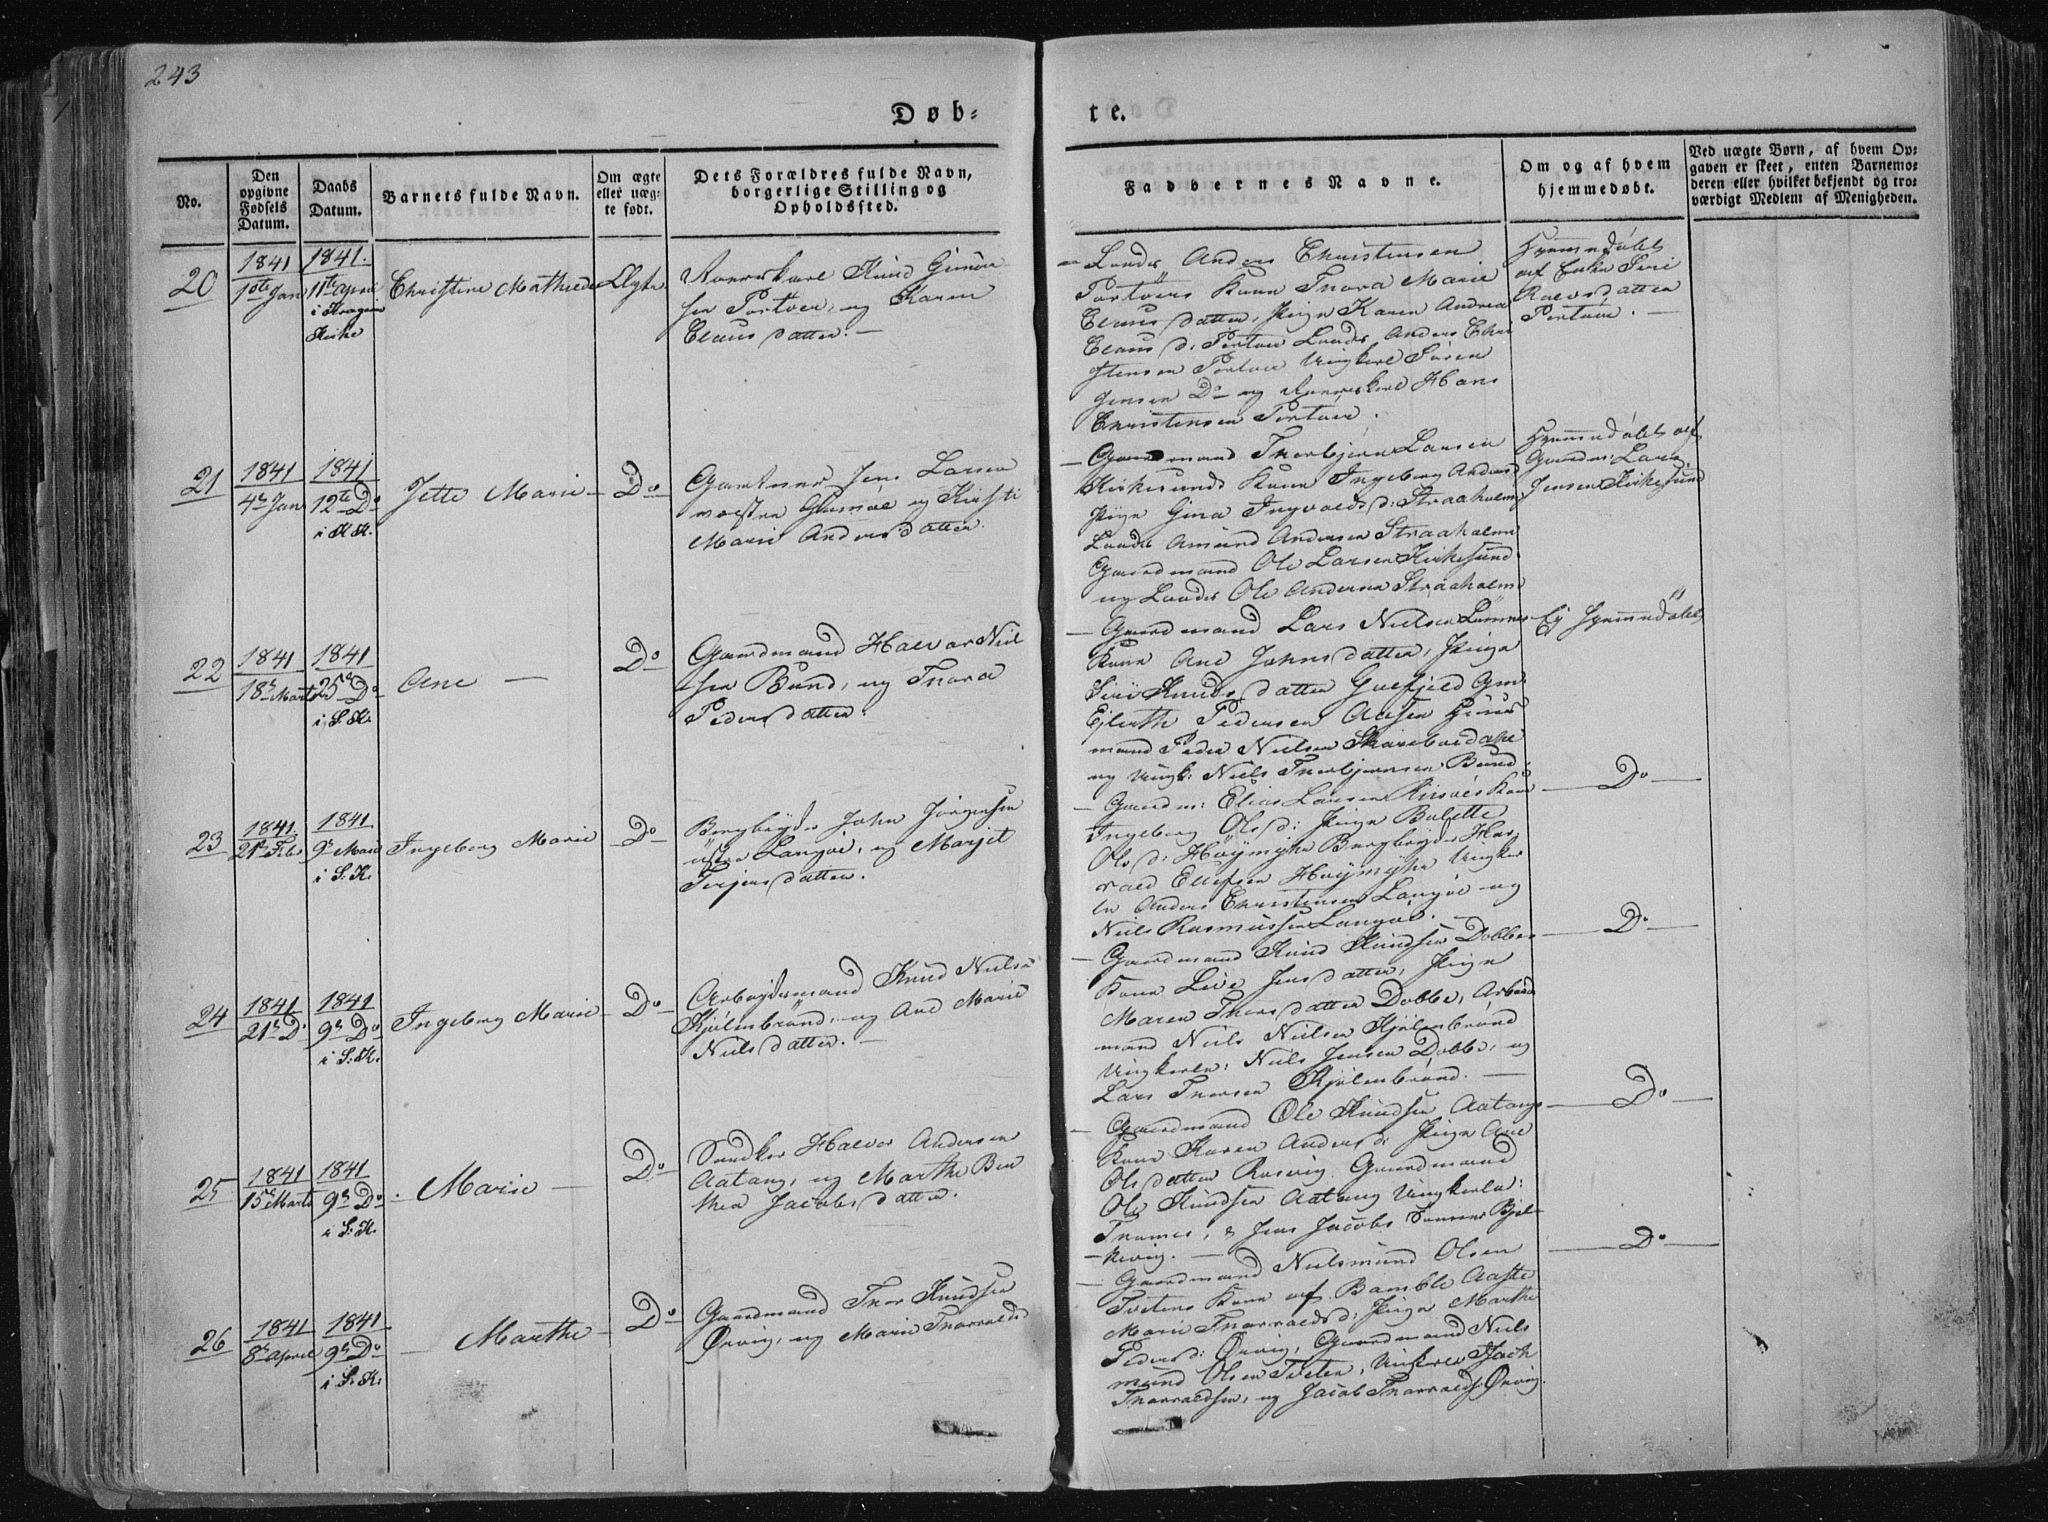 243
Døb-
te.
No.
Den
opgivne
Fødsels
Datum.
Daabs
Datum.
Barnets fulde Navn.
Om ægte
eller uæg-
te født.
Dets Forældres fulde Navn,
borgerlige Stilling og
Opholdssted.
Fadbernes Navne.
Om og af hvem
hjemmedøbt.
Ved uægte Børn, af hvem Op-
gaven er skeet, enten Barnemo-
deren eller hvilket bekjendt og tro-
værdigt Medlem af Menigheden.
20
1841
1ste Jan
1841.
11te April
i Kragerø
Kirke
Christine Mathilde
Ægte
Knud
sen Portøer, og Karen
Clausdatter. —
— Lods Anders Christensen
Portøers Kone Thora Marie
Clausdatter, Pige Karen Andrea
Claus d: Portøer Lods Anders Chri
stensen Portøer Ungkerl Søren
Jensen Do og Hans
Christensen Portøer.
Hjemmedøbt
af Enke Siri
Roevsdatter
Portøer. —
21
1841
4de Jan
1841
12te Do
i K K.
Jette Marie
Do
Jens Larsen
vestre Gumøe og Kirsti
Marie Andersdatter
— Gaardmand Thorbjørn Larsen
Kirkesunds Kone Ingeborg Andersd
Pige Gina Ingvoldsd: Straaholm
Lods Amund Andersen Straaholm
Gaardmand Ole Larsen Kirkesund
og Lods Ole Andersen Straaholm
Hjemmedøbt af
Gaardm: Lars
Jensen Kirkesund
22
1841
18de Marts
1841
25de Do
i S. K.
Ane —
Do
Gaardmand Halvor Niel
sen Bund, og Thora
Pedersdatter.
— Gaardmand Lars Nielsen
Kone Ane Johnsdatter, Pige
Siri Knudsdatter
Pedersen Aasen
mand Peder Nielsen
og Ungk: Niels Thorbjørnsen Bund.
Ej Hjemmedøbt
23
1841
21de Febr
1841
9de Mai
i S. K.
Ingeborg Marie
Do
Bergbryder John Jørgensen
østre Langøe, og Margit
Terjesdatter.
— Gaardm: Elias Larsen Kone
Ingeborg Olsd: Pige Bolette
Olsd: Høymyhr Bergbryder Har
vald Ellefsen Høymyhr Ungker
le Anders Christensen Langøe og
Niels Rasmussen Langøe. —
Do
24
1841
21de Do
1841
9de Do
i S. K.
Ingeborg Marie
Do
Arbeidsmand Knud Nielsen
Kjølebrønd, og Ane Marie
Nielsdatter. —
— Gaardmand Knud Knudsen Dobbes
Kone Live Jensdatter, Pige
Maren Thorsdatter Dobbe, Arbeids
mand Niels Nielsen Kjølebrønd
Ungkerle: Niels Jensen Dobbe, og
Lars Thorsen Kjølebrønd. —
Do
25
1841
15de Marts
1841
9de Do
i S. K.
Marie —
Do
Halvor Andersen
Aatang, og Marthe Ben
thea Jacobsdatter.
— Gaardmand Ole Knudsen Aatangs
Kone Karen Andersd: Pige Ane
Olsdatter Rosvig Gaardmand
Ole Knudsen Aatang Ungkerle:
& Jens Jacobs
kevig. —
Do
26
1841
8de April
1841
9de Do
i S. K.
Marthe —
Do
Gaardmand Thor Knudsen
Ørvig, og Marie Thorvaldsd
— Gaardmand Nielsmund Olsen
Tvetens Kone af Bamble Aaste
Marie Thorvaldsd: Pige Marthe
Pedersd: Ørvig, Gaardmand Niels
mund Olsen Tveten, Ungkerle
Thorvaldsen, og Jacob Thorvalds: Ørvig.
Do